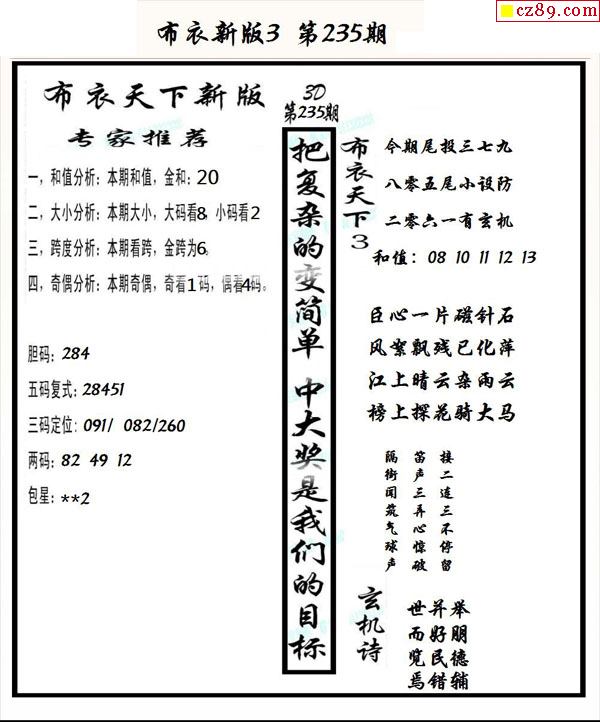 cz89.com
布衣新版3 第235期
布衣天下新版
专家推荐
一，和值分析：本期和值，金和：20
二，大小分析：本期大小，大码看8，小码看2
三，跨度分析：本期看跨，金跨为6。
四，奇偶分析：本期奇偶，奇看1码，偶看4码。
胆码：284
五码复式：28451
三码定位：091/ 082/260
两码：82 49 12
包星：**2
3D
第235期
把复杂的变简单 中大奖是我们的目标
布衣天下3
今期尾投三七九
八零五尾小设防
二零六一有玄机
和值：08 10 11 12 13
巨心一片磁针石
风絮飘残已化萍
江上晴云杂雨云
榜上探花骑大马
接二连三不停留
笛声三弄心惊破
隔街闻筑气球声
玄机诗
世并举
而好朋
览民德
焉错辅